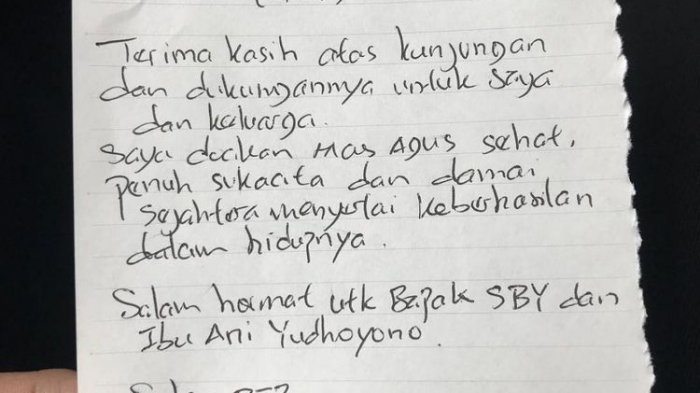 Terima kasih atas kunjungan
dan dukungannya untuk saya
dan keluarga.
Saya doakan Mas Agus sehat,
penuh sukacita dan damai
sejahtera menyertai keberhasilan
dalam hidupnya.
Salam hormat utk Bapak SBY dan
Ibu Ani Yudhoyono.